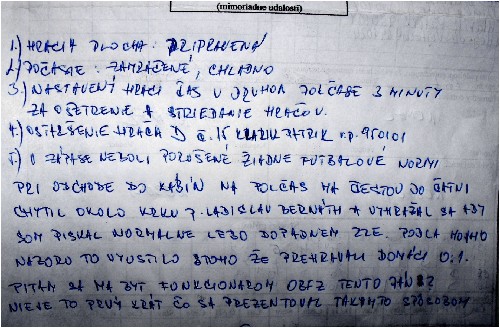 (mimoriadne udalosti)
1.) HRACIA PLOCHA: PRIPRAVENÁ
2.) POČASIE: ZAMRAČENÉ, CHLADNO
3.) NASTAVENÝ HRACÍ ČAS V DRUHOM POLČASE 3 MINUTY
ZA OŠETRENIE A STRIEDANIE HRAČOV.
4.) HRAČA D č. 15 PATRIK r.p. 950101
5.) V ZÁPASE NEBOLI PORUŠENÉ ŽIADNE FUTBALOVÉ NORMI
PRI ODCHODE DO KABÍN NA POLČAS MA CESTOU DO ŠATNI
CHYTIL OKOLO KRKU P. LADISLAV BERNÁTH A VYHRAŽAL SA ABY
SOM PISKAL NORMALNE LEBO DOPADNEM ZLE. PODLA MOJHO
NAZORU TO VYUSTILO Z TOHO ŽE PREHRAVALI DOMÁCI 0:1.
PITAM SA MA BYT FUNKCIONAROM OBFZ TENTO PÁN?
NIEJE TO PRVÝ KRÁT ČO SA PREZENTOVAL TAKYMTO SPÔSOBOM